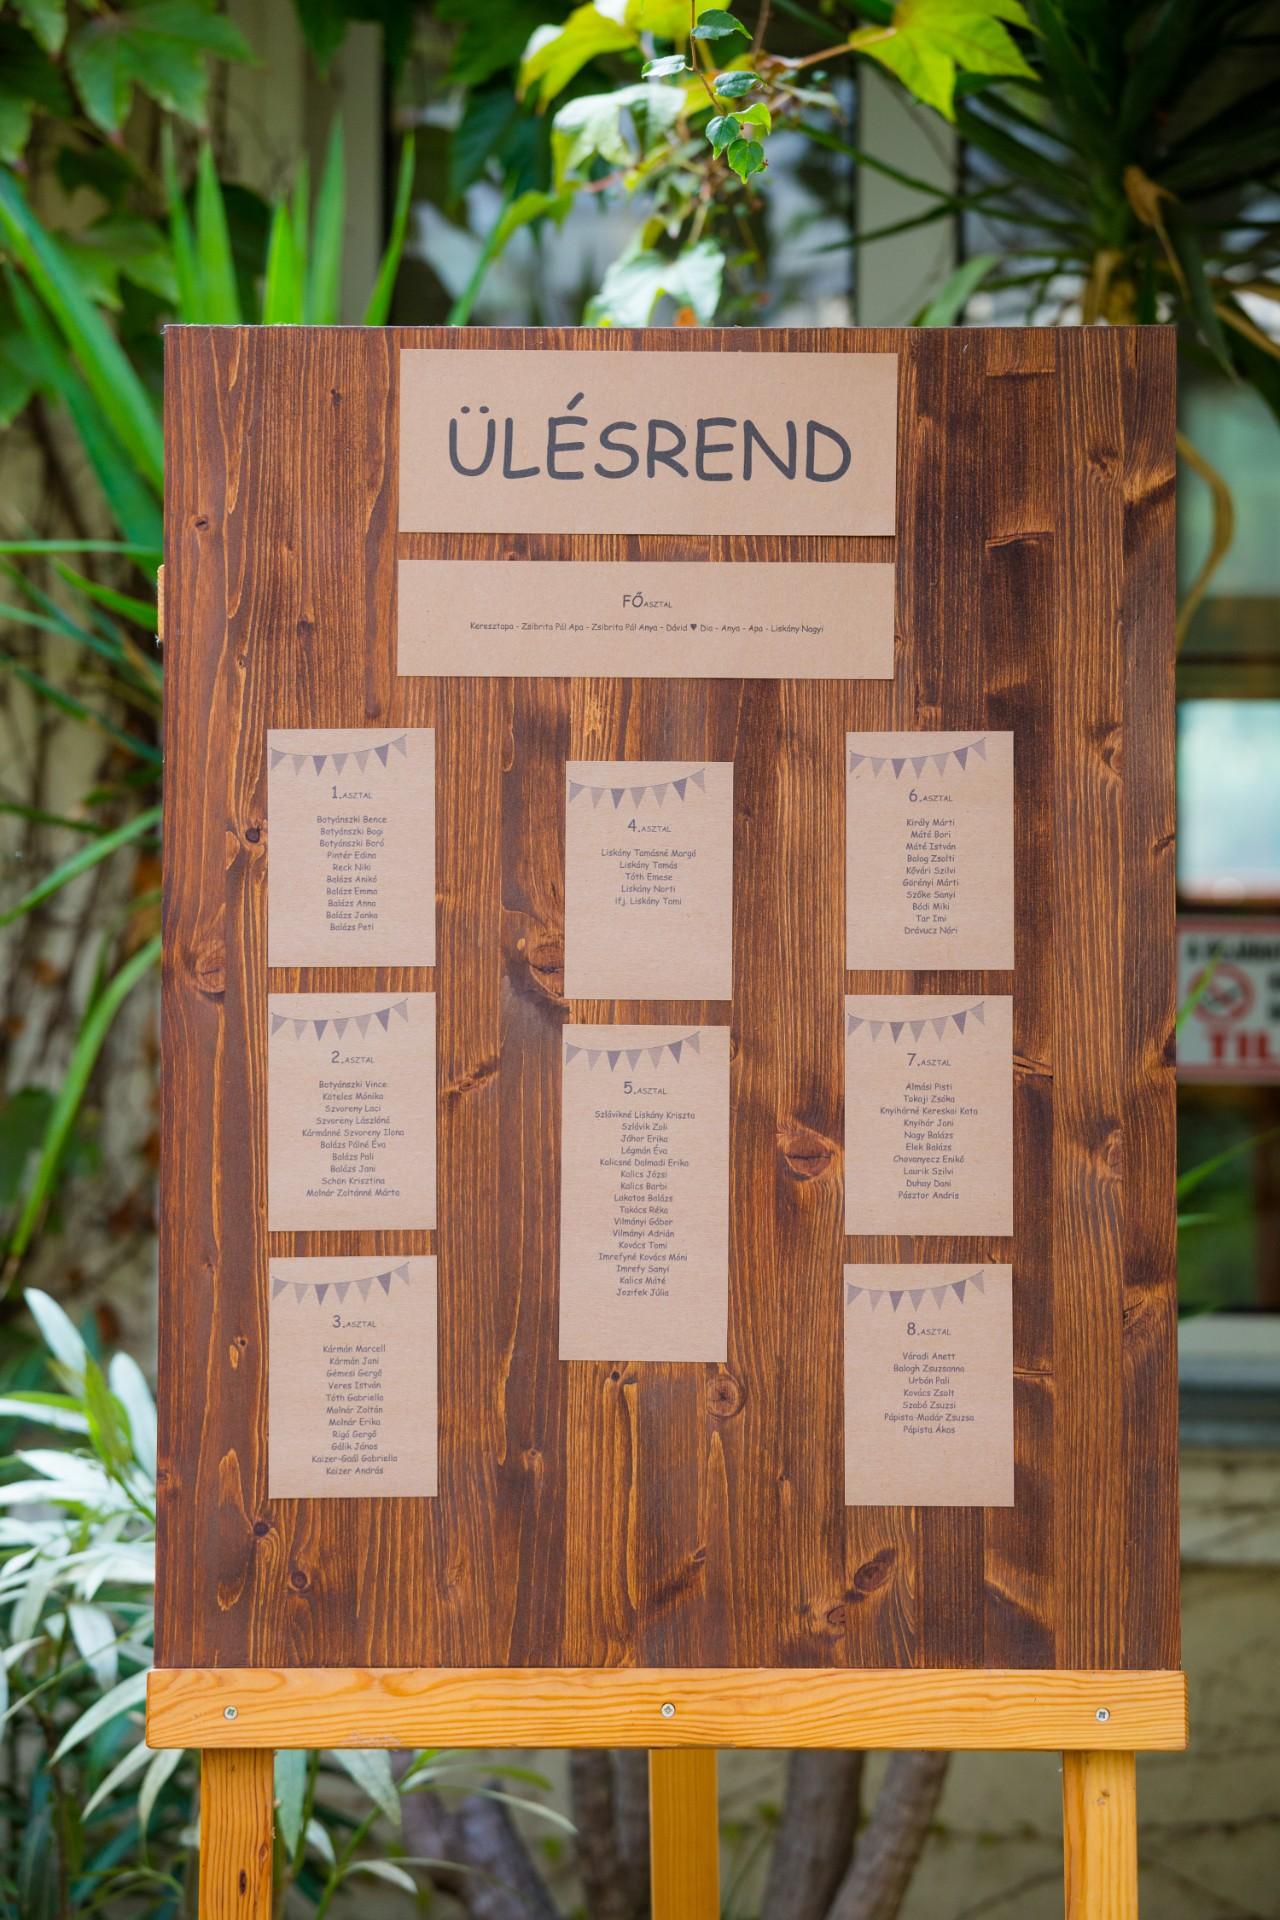 ÜLÉSREND
FŐASZTAL
Keresztapa - Zsibrita Pál Apa - Zsibrita Pál Anya - Dávid ♥ Dia - Anya - Apa - Liskány Nagyi
1.ASZTAL
Botyánszki Bence
Botyánszki Bogi
Botyánszki Boró
Pintér Edina
Reck Niki
Balázs Anikó
Balázs Emma
Balázs Anna
Balázs Janka
Balázs Peti
2.ASZTAL
Botyánszki Vince
Köteles Mónika
Szvoreny Laci
Szvoreny Lászlóné
Kármánné Szvoreny Ilona
Balázs Pálné Éva
Balázs Pali
Balázs Jani
Schön Krisztina
Molnár Zoltánné Márta
3.ASZTAL
Kármán Marcell
Kármán Jani
Gémesi Gergő
Veres István
Tóth Gabriella
Molnár Zoltán
Molnár Erika
Rigó Gergő
Gálik János
Kaizer-Gaál Gabriella
Kaizer András
4.ASZTAL
Liskány Tamásné Margó
Liskány Tamás
Tóth Emese
Liskány Norti
ifj. Liskány Tomi
5.ASZTAL
Szlávikné Liskány Kriszta
Szlávik Zoli
Jáhor Erika
Légmán Éva
Kalicsné Dalmadi Erika
Kalics Józsi
Kalics Barbi
Lakatos Balázs
Takács Réka
Vilmányi Gábor
Vilmányi Adrián
Kovács Tomi
Imrefyné Kovács Móni
Imrefy Sanyi
Kalics Máté
Jozifek Júlia
6.ASZTAL
Király Márti
Máté Bori
Máté István
Balog Zsolti
Kővári Szilvi
Görényi Márti
Szőke Sanyi
Bódi Miki
Tar Imi
Drávucz Nóri
7.ASZTAL
Almási Pisti
Tokaji Zsóka
Knyihárné Kereskai Kata
Knyihár Jani
Nagy Balázs
Elek Balázs
Chovanyecz Enikő
Laurik Szilvi
Duhay Dani
Pásztor Andris
8.ASZTAL
Váradi Anett
Balogh Zsuzsanna
Urbán Pali
Kovács Zsolt
Szabó Zsuzsi
Pápista-Madár Zsuzsa
Pápista Ákos